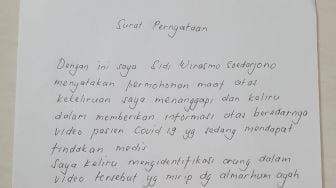 Surat Pernyataan
Dengan ini saya Sidi Wirasmo Soedarjono
menyatakan permohonan maaf atas
kekeliruan saya menanggapi dan keliru
dalam memberikan informasi atas beredarnya
video pasien Covid 19 yg sedang mendapat
tindakan medis
Saya keliru mengidentifikasi orang dalam
video tersebut yg mirip dg almarhum ayah